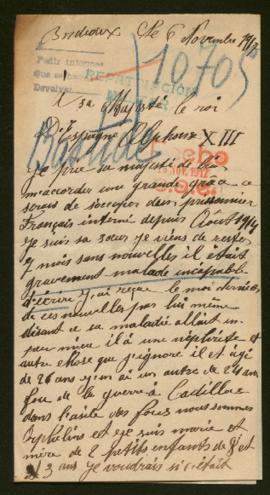 Bordeaux le 6 Novembre 1917
Pedir informes
Devolver
10705
REPATRIACIÓN
a sa Majesté le roi
d'Espagne Alphonse XIII
Bastide
je prie sa majesté de bien
m'accorder une grande grâce ce
serais de s'occuper d'un prisonnier
Français interné depuis Août 1914
je suis sa sœur je viens de rester
7 mois sans nouvelles il était
gravement malade incapable
d'écrire j'ai reçue le moi dernier
de ces nouvelles par lui même
disant que sa maladie allait un
peu mieu il à une néphrite et
autre chose que j'ignore il est agé
de 26 ans j'en ai un autre de 24 ans
fou de la guerre à Cadillac
dans l'asile des fous nous sommes
Orphelins et je suis marié et
mère de 2 petits enfants de 8 et
3 ans je voudrais si c'était